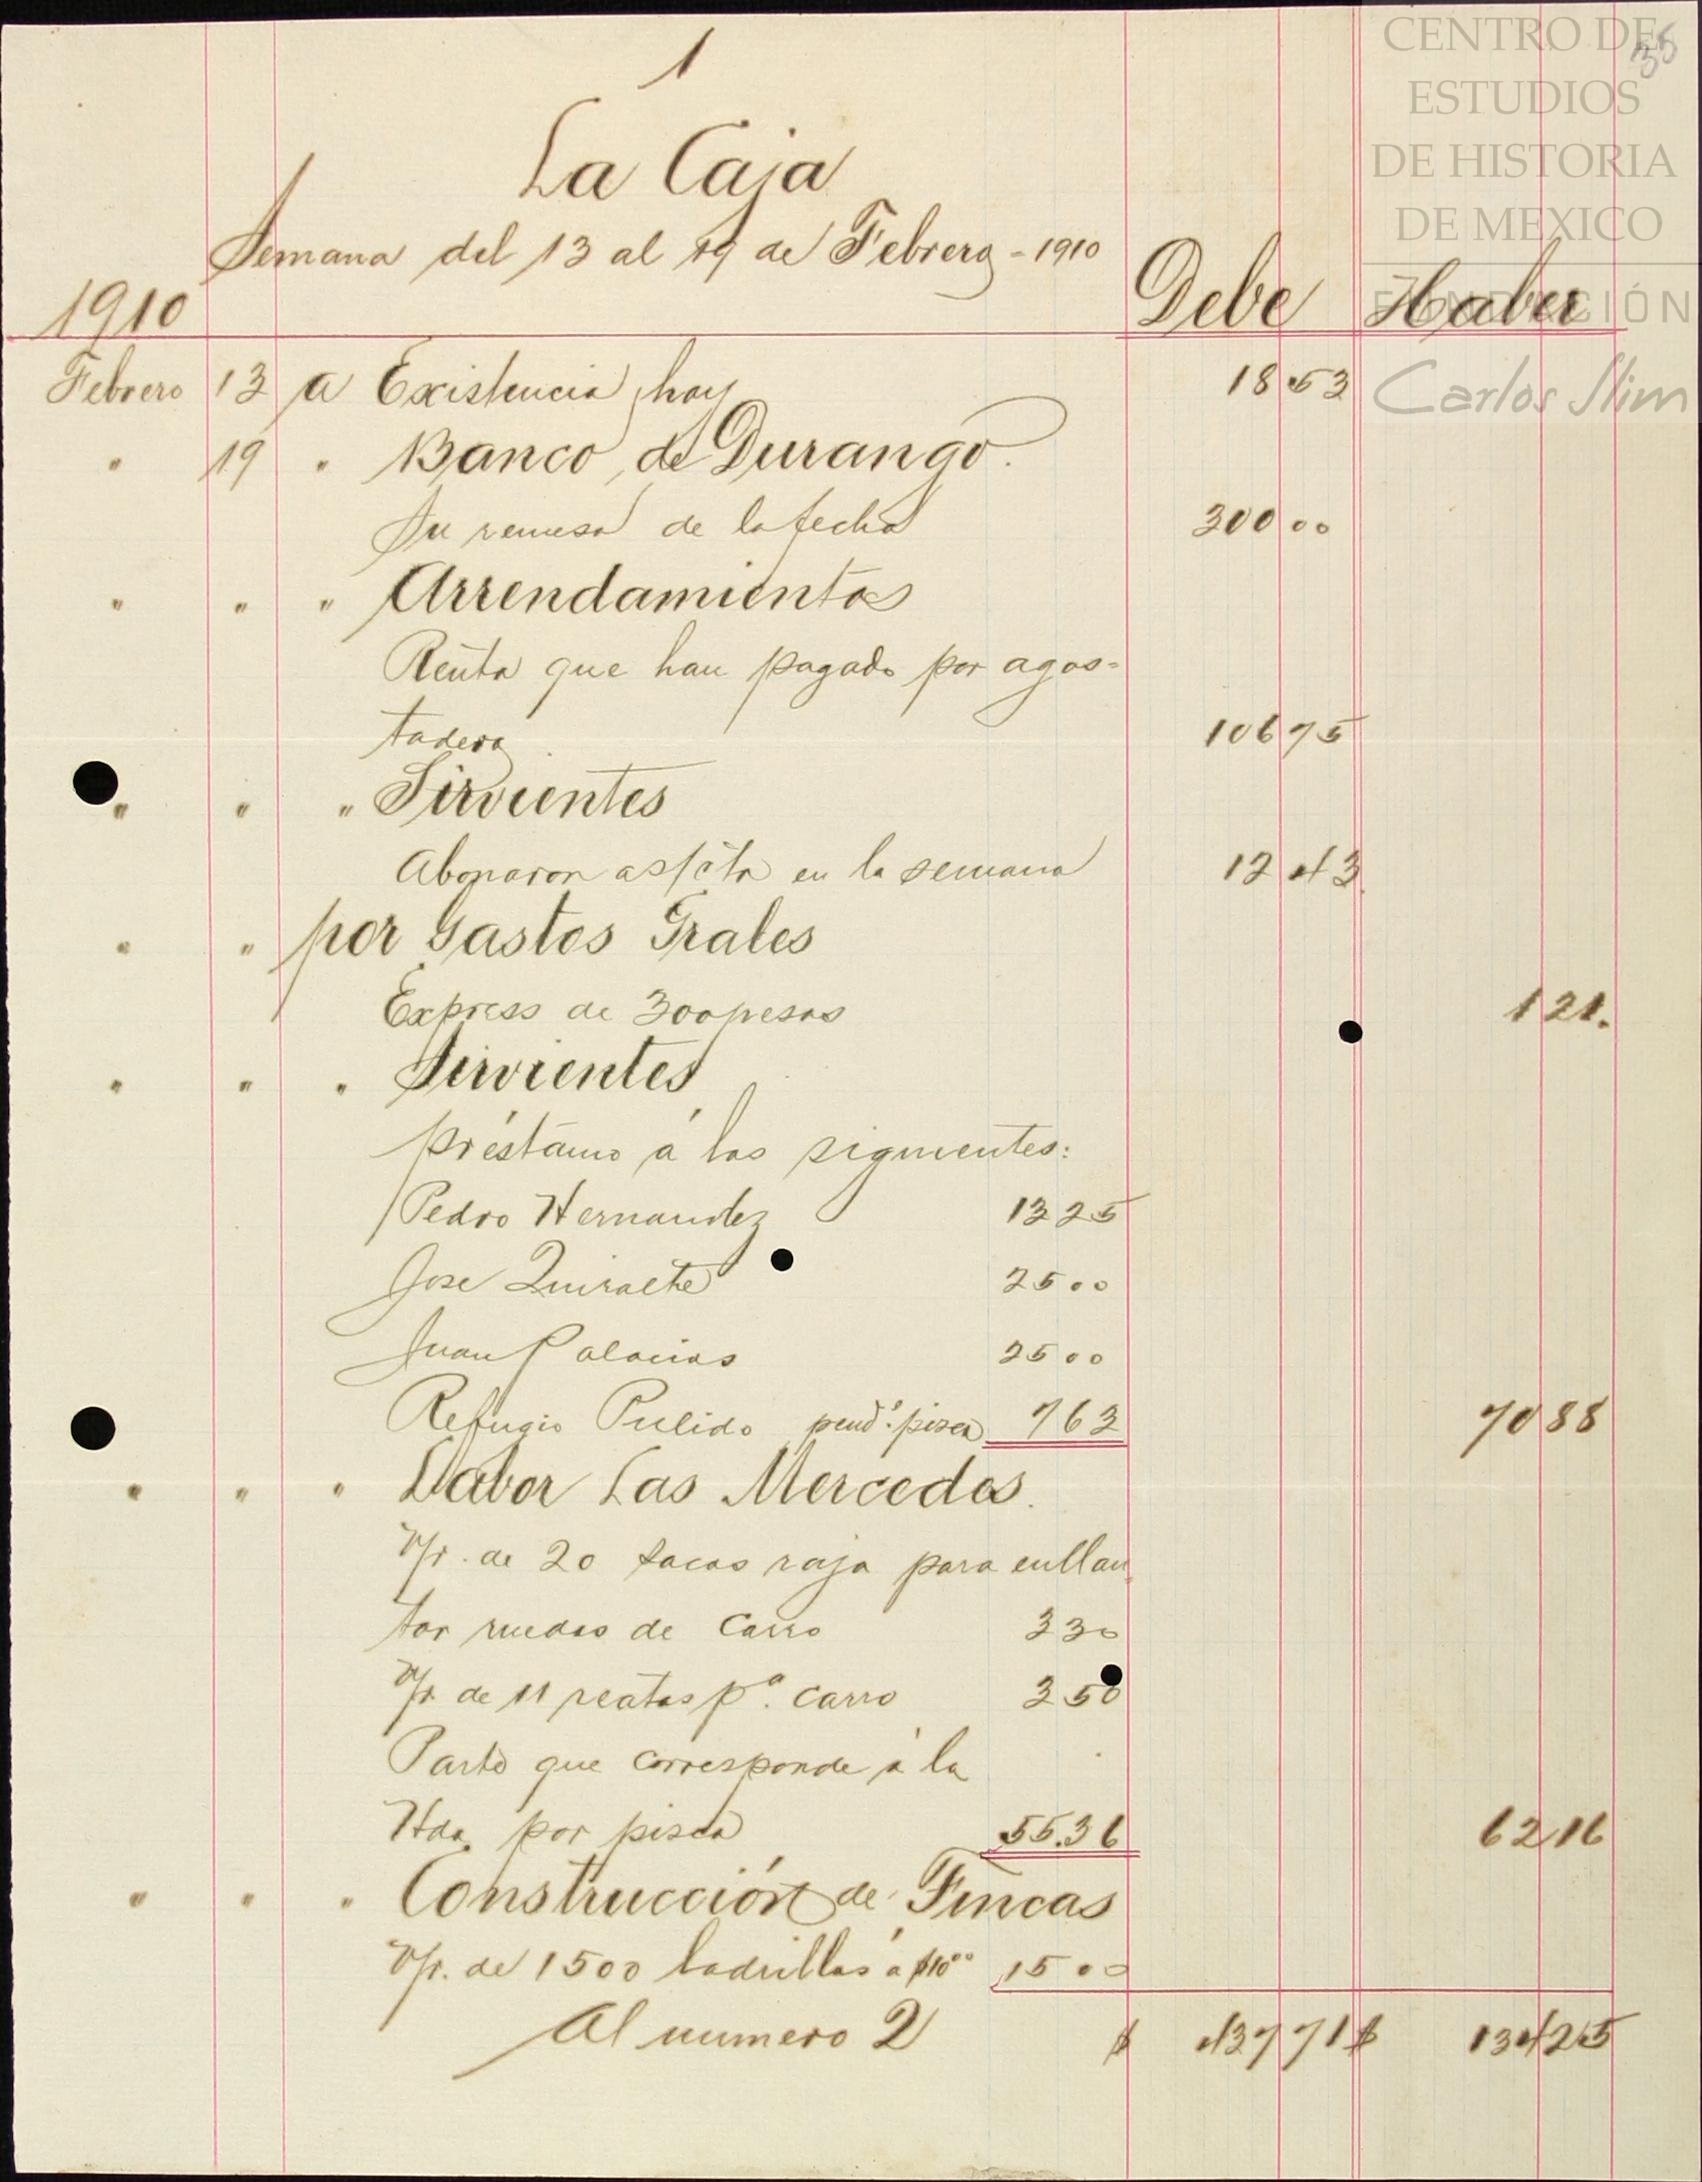 1
35
CENTRO DE
ESTUDIOS
DE HISTORIA
DE MEXICO
FUNDACIÓN
Carlos Slim
La Caja
Semana del 13 al 19 de Febrero - 1910
1910 Debe Haber
Febrero 13 a Existencia hoy 18 53
" 19 " Banco de Durango.
Su remesa de la fecha 300 00
" " " Arrendamientos
Renta que han pagado por agos=
tadero 106 75
" " " Sirvientes
Abonaron a s/cta en la semana 12 43
" " por Gastos Grales
Express de 300 pesos 1 21.
" " " Sirvientes
préstamo á los siguientes:
Pedro Hernandez 13 25
Jose Quiralte 25 00
Juan Palacios 25 00
Refugio Pulido pend.e pisca 7 63 70 88
" " " Labor Las Mercedes.
V/r. de 20 tacos raja para enllan
tar ruedas de Carro 3 30
V/r. de 11 reatas pa. carro 3 50
Parte que corresponde á la
Hda. por pisca 55.36 62 16
" " " Construcción de Fincas
V/r. de 1500 ladrillos á $10 00 15 00
Al numero 2 $ 437 71 $ 134 25